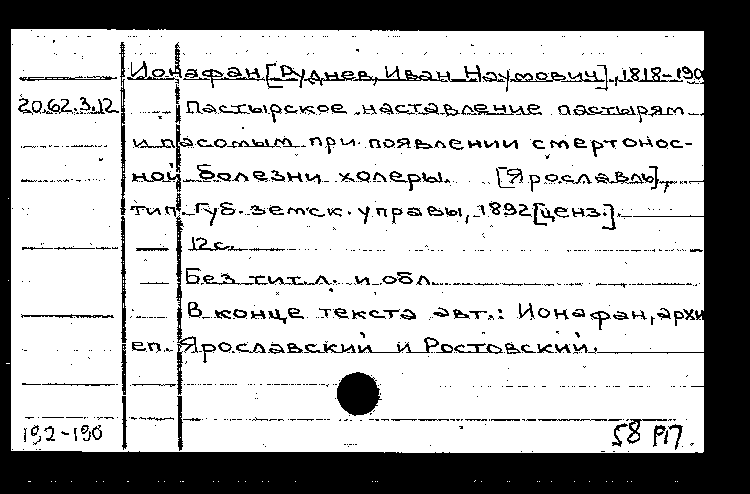 Ионафан [Руднев, Иван Наумович], 1818-190
20.62.3.12 Пастырское наставление пастырям
и пасомым при появлении смертонос-
ной болезни холеры. [Ярославль],
тип. Губ. земск. управы, 1892 [ценз.].
12 с.
Без тит. л. и обл.
В конце текста авт.: Ионафан, архи
еп. Ярославский и Ростовский.
192-190 58 РП